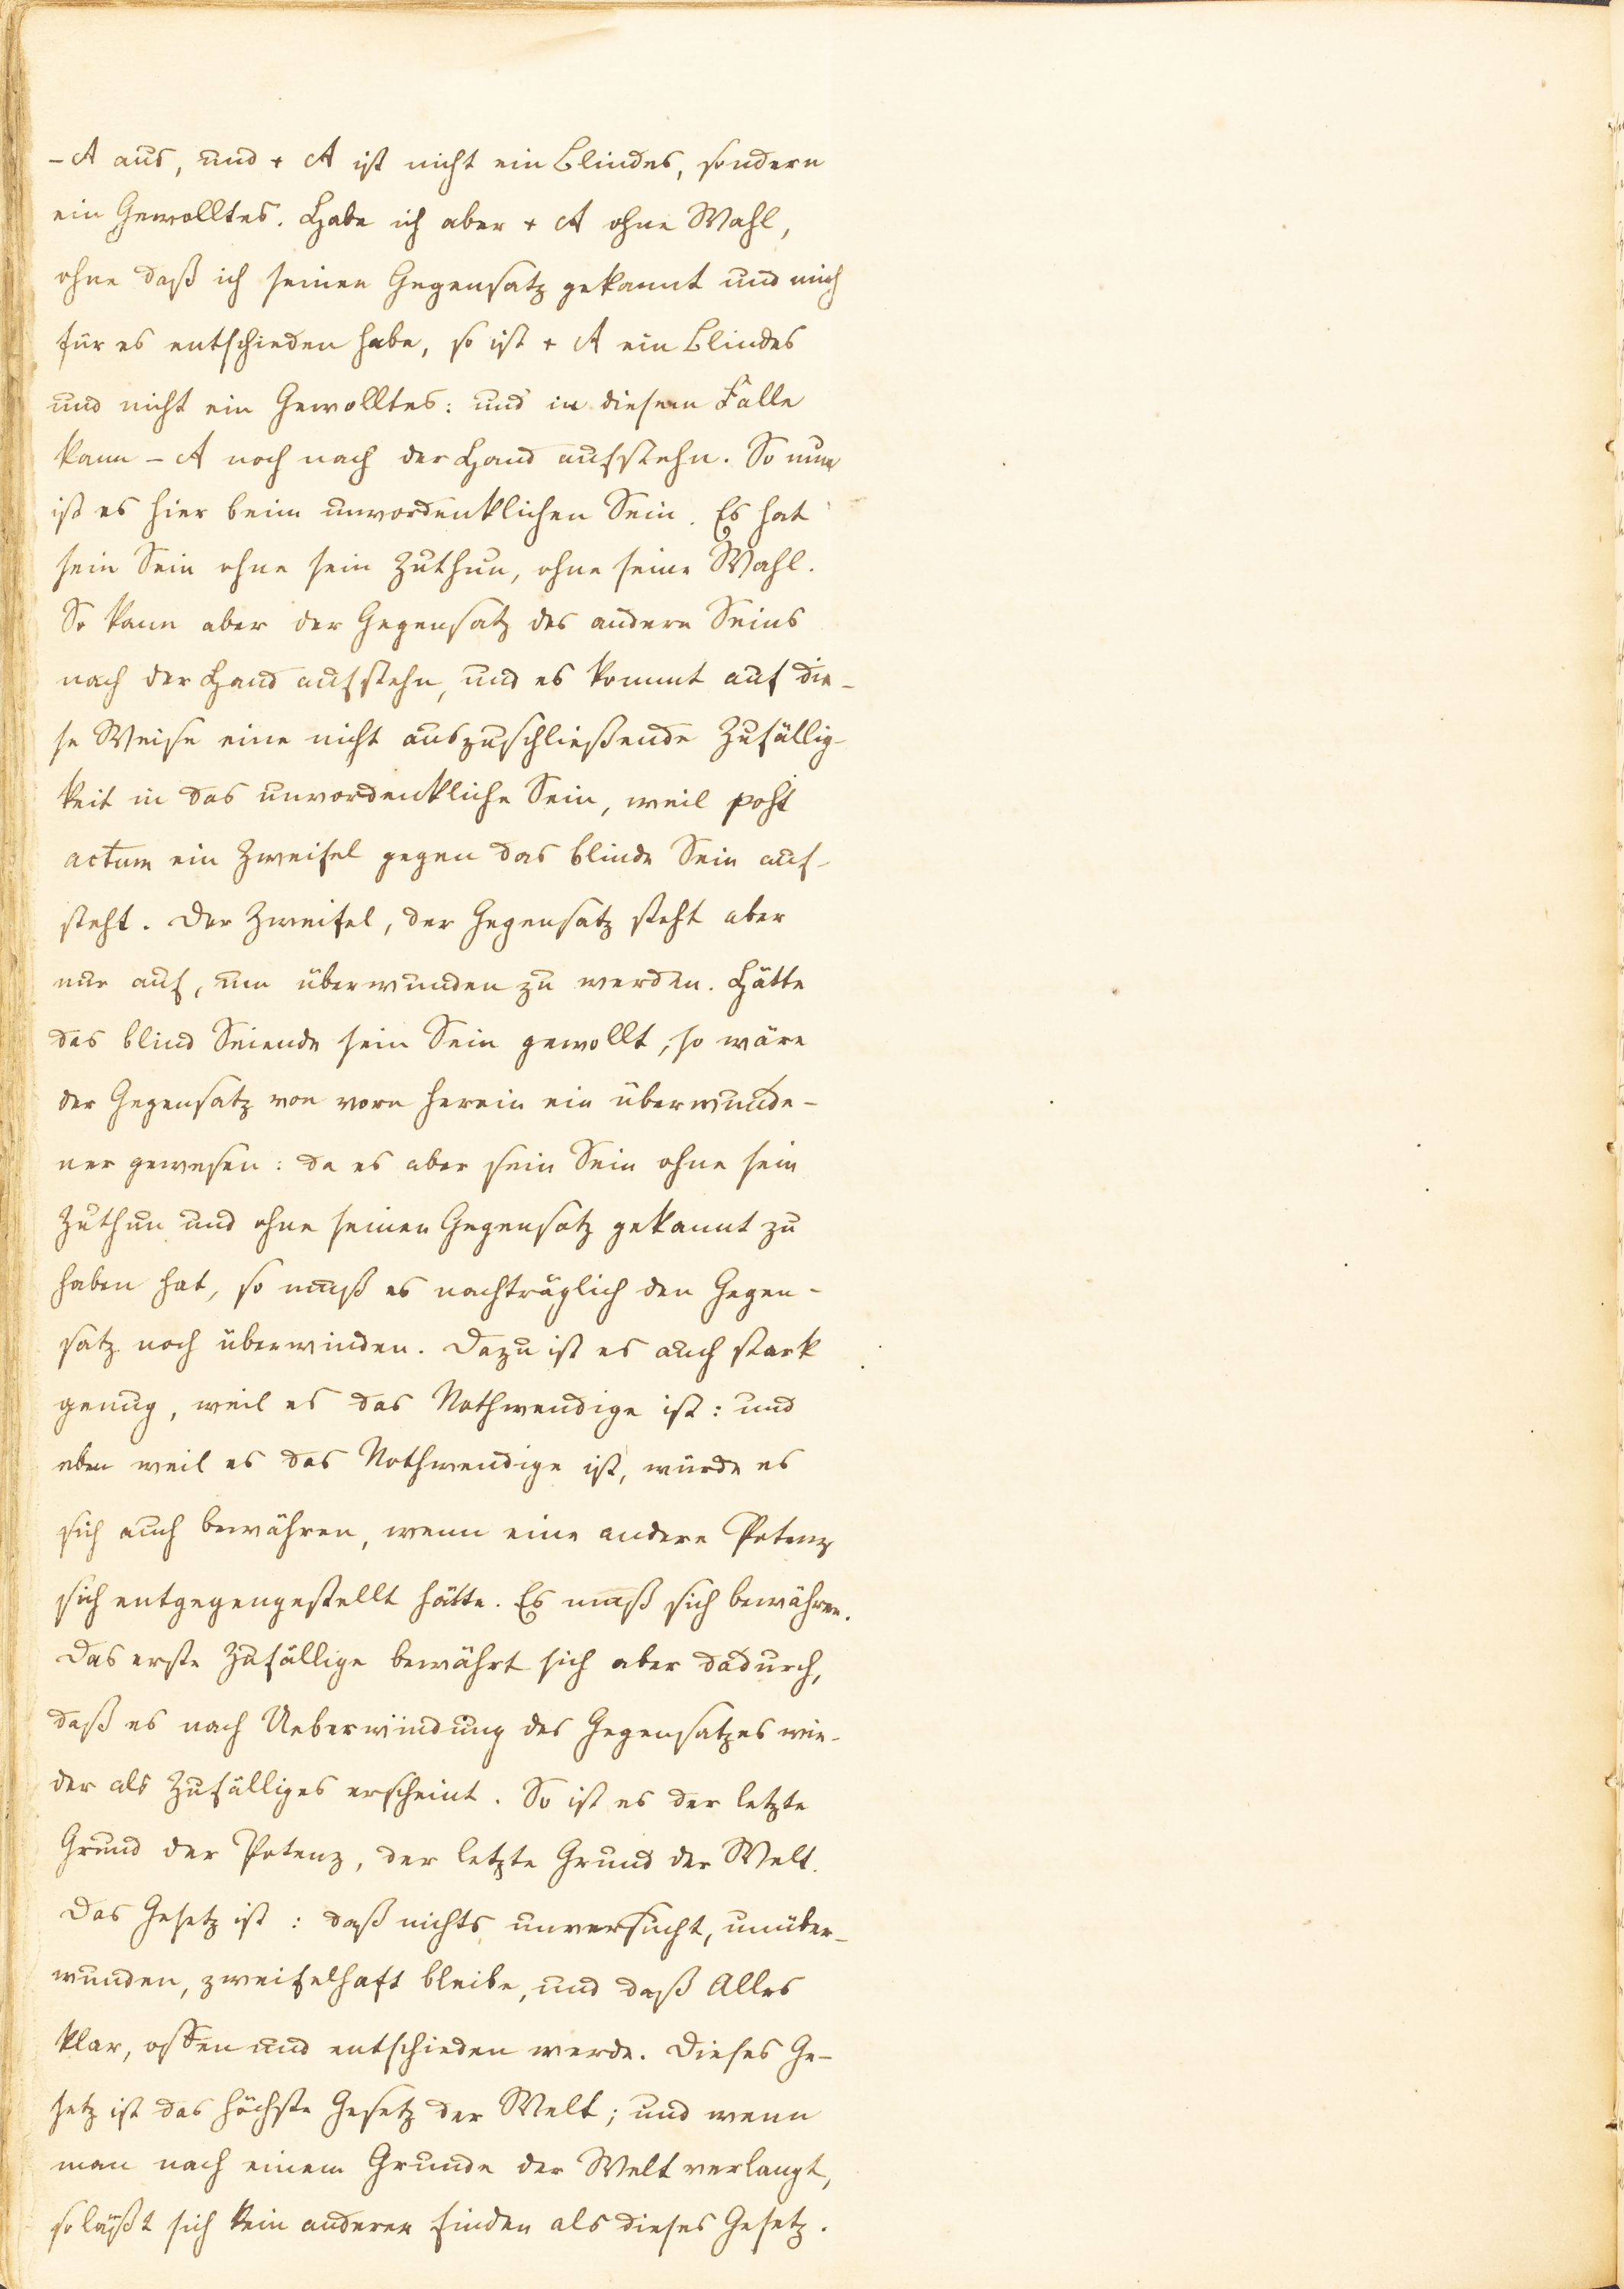 – A aus, und + A ist nicht ein Blindes, sondern
ein Gewolltes. Habe ich aber + A ohne Wahl,
ohne daß ich seinen Gegensatz gekannt und mich
für es entschieden habe, so ist + A ein Blindes
und nicht ein Gewolltes: und in diesem Falle
kann – A noch nach der Hand aufstehn. So nun
ist es hier beim unvordenklichen Sein. Es hat
sein Sein ohne sein Zuthun, ohne seine Wahl.
So kann aber der Gegensatz des andern Seins
nach der Hand aufstehn, und es kommt auf die-
se Weise eine nicht auszuschließende Zufällig-
keit in das unvordenkliche Sein, weil post
actum ein Zweifel gegen das blinde Sein auf-
steht. Der Zweifel, der Gegensatz steht aber
nur auf, um überwunden zu werden. Hätte
das blind Seiende sein Sein gewollt, so wäre
der Gegensatz von vorn herein ein überwunde-
ner gewesen: da es aber sein Sein ohne sein
Zuthun und ohne seinen Gegensatz gekannt zu
haben hat, so muß es nachträglich den Gegen-
satz noch überwinden. Dazu ist es auch stark
genug, weil es das Nothwendige ist: und
eben weil es das Nothwendige ist, würde es
sich auch bewähren, wenn eine andere Potenz
sich entgegengestellt hätte. Es muß sich bewähren.
Das erste Zufällige bewährt sich aber dadurch,
daß es nach Ueberwindung des Gegensatzes wie-
der als Zufälliges erscheint. So ist es der letzte
Grund der Potenz, der letzte Grund der Welt.
Das Gesetz ist: daß nichts unversucht, unüber-
wunden, zweifelhaft bleibe, und daß Alles
klar, offen und entschieden werde. Dieses Ge-
setz ist das höchste Gesetz der Welt; und wenn
man nach einem Grunde der Welt verlangt,
so läßt sich kein anderer finden als dieses Gesetz.